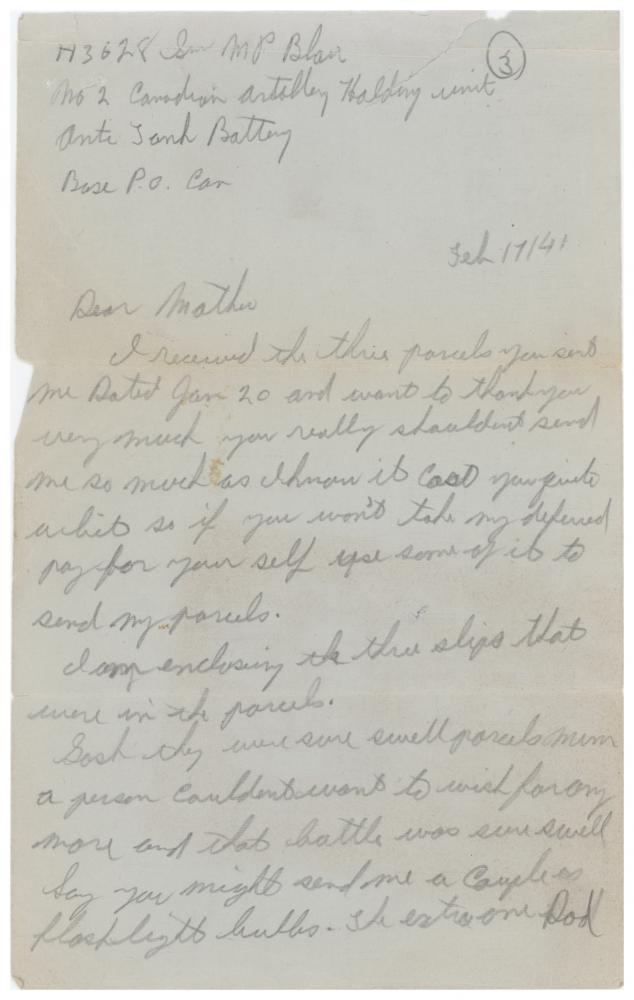 H3628 Gnr MP Blair
3
No 2 Canadian artillery Holding unit
Anti Tank Battery
Base P.O. Can
Feb 17/41
Dear Mother
I received the three parcels you sent
me Dated Jan 20 and want to thank you
very much you really shouldent send
me so much as I know it cost you quite
a bit so if you won't take my deferred
pay for your self use some of it to
send my parcels.
I am enclosing the three slips that
were in the parcels.
Gosh they were sure swell parcels mum
a person couldent want to wish for any
more and that bottle was sure swell
Say you might send me a couple
flashlight bulbs. The extra one Dad